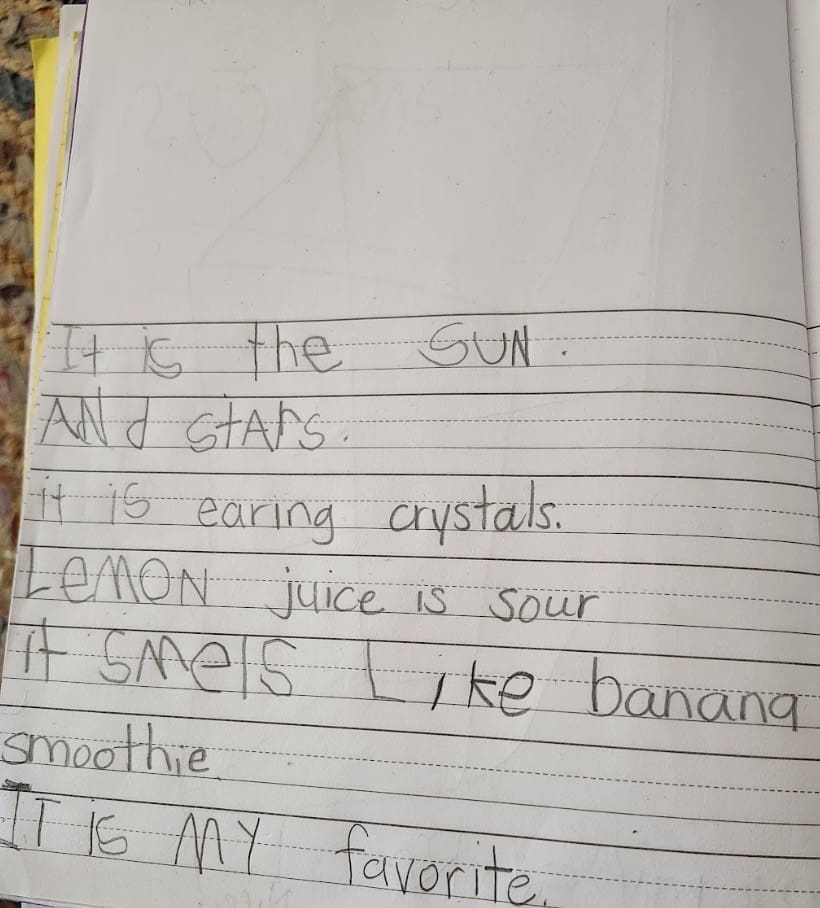 It is the SUN.
ANd stArs.
it is earing crystals.
LeMON juice is sour
it SMelS Like banana
smoothie
IT IS MY favorite.